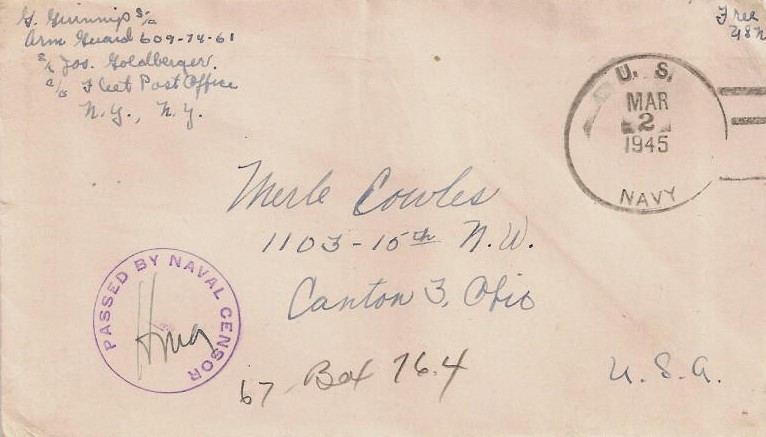 G. Guinnip S 1/c
Arm Guard 609-74-61
S/S Jos. Goldberger.
c/o Fleet Post Office
N.Y., N.Y.
Free
USN
U. S.
MAR
2
1945
NAVY
Merle Cowles
1103-15th N.W.
Canton 3, Ohio
U.S.A.
PASSED BY NAVAL CENSOR
67 Box 76.4